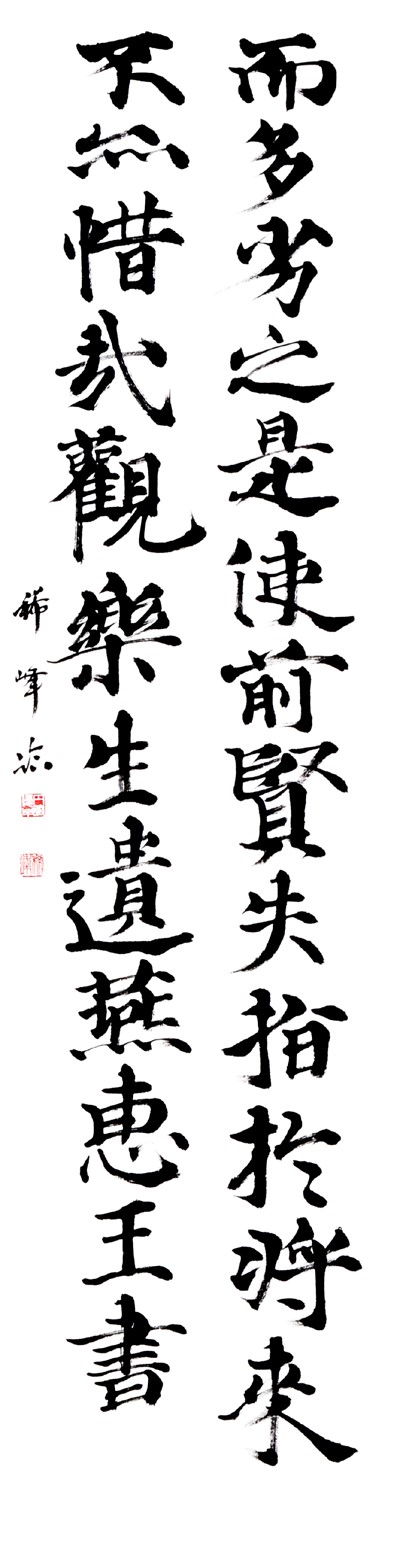 而多劣之是使前賢失指於將來
不亦惜哉觀樂生遺燕惠王書
稀峰臨